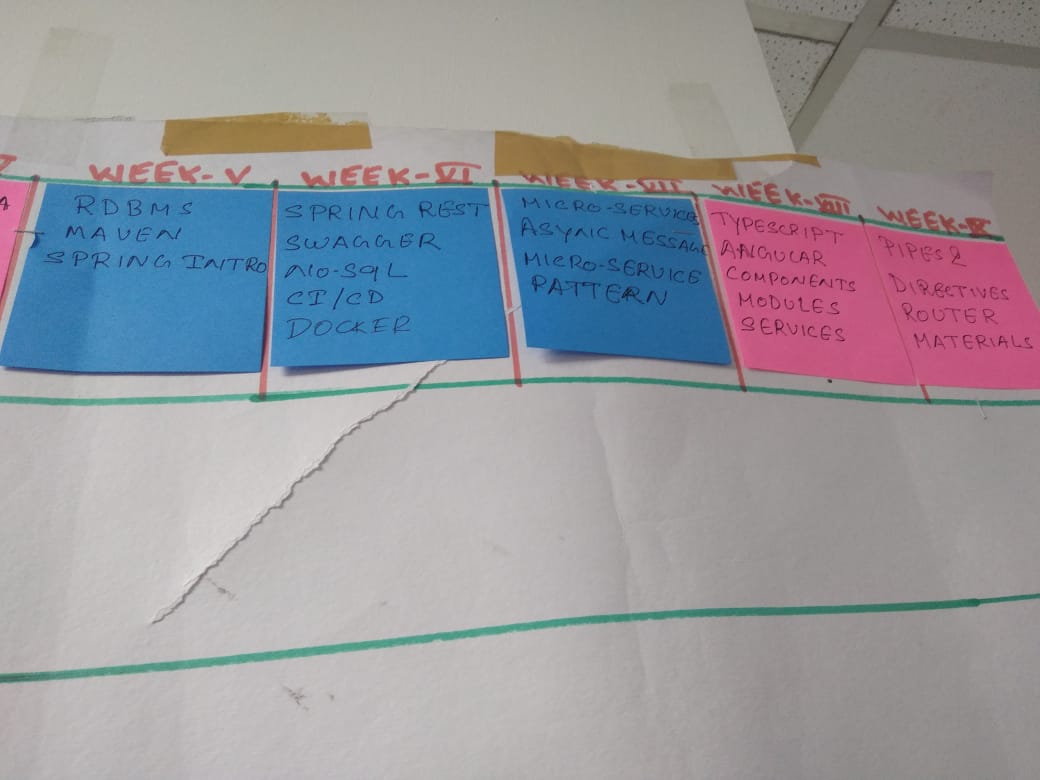 WEEK-V
RDBMS
MAVEN
SPRING INTRO
WEEK-VI
SPRING REST
SWAGGER
NO-SQL
CI/CD
DOCKER
WEEK-VII
MICRO-SERVICES
ASYNC MESSAGE
MICRO-SERVICE
PATTERN
WEEK-VIII
TYPESCRIPT
ANGULAR
COMPONENTS
MODULES
SERVICES
WEEK-IX
PIPES &
DIRECTIVES
ROUTER
MATERIALS